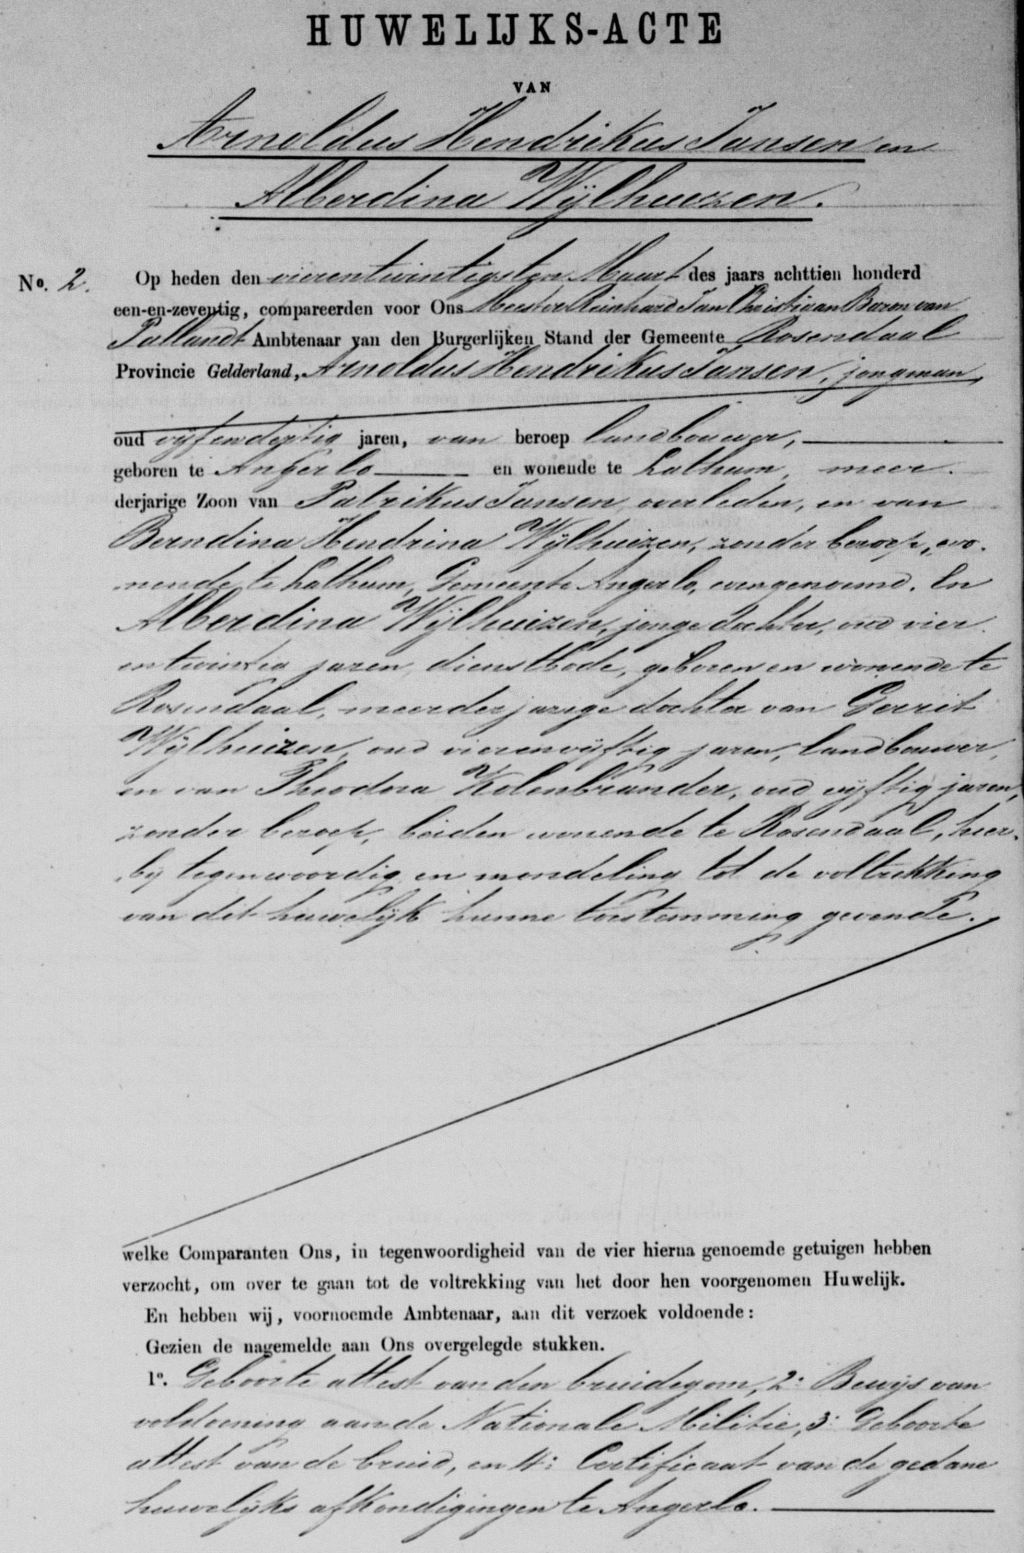 HUWELIJKS-ACTE
VAN
Arnoldus Hendrikus Jansen en
Alberdina Wijlhuizen.
No. 2. Op heden den vierentwintigsten Maart des jaars achttien honderd
een-en-zeventig, compareerden voor Ons Meester Reinhard Jan Christiaan Baron van
Pallandt Ambtenaar van den Burgerlijken Stand der Gemeente Rosendaal
Provincie Gelderland, Arnoldus Hendrikus Jansen, jongman,
oud vijfendertig jaren, van beroep landbouwer,
geboren te Angerlo en wonende te Lathum, meer-
derjarige Zoon van Patrikus Jansen overleden, en van
Berndina Hendrina Wijlhuizen, zonder beroep, wo-
nende te Lathum, Gemeente Angerlo, evengenoemd. En
Alberdina Wijlhuizen, jonge dochter, oud vier
en twintig jaren, dienstbode, geboren en wonende te
Rosendaal, meerderjarige dochter van Gerrit
Wijlhuizen, oud vierenvijftig jaren, landbouwer,
en van Theodora Kolenbrander, oud vijftig jaren,
zonder beroep, beiden wonende te Rosendaal, hier-
bij tegenwoordig en mondeling tot de voltrekking
van dit huwelijk hunne toestemming gevende.
welke Comparanten Ons, in tegenwoordigheid van de vier hierna genoemde getuigen hebben
verzocht, om over te gaan tot de voltrekking van het door hen voorgenomen Huwelijk.
En hebben wij, voornoemde Ambtenaar, aan dit verzoek voldoende:
Gezien de nagemelde aan Ons overgelegde stukken.
1°. Geboorte attest van den bruidegom, 2° Bewijs van
voldoening aan de Nationale Militie, 3° Geboorte
attest van de bruid, en 4° Certificaat van de gedane
huwelijks afkondigingen te Angerlo.